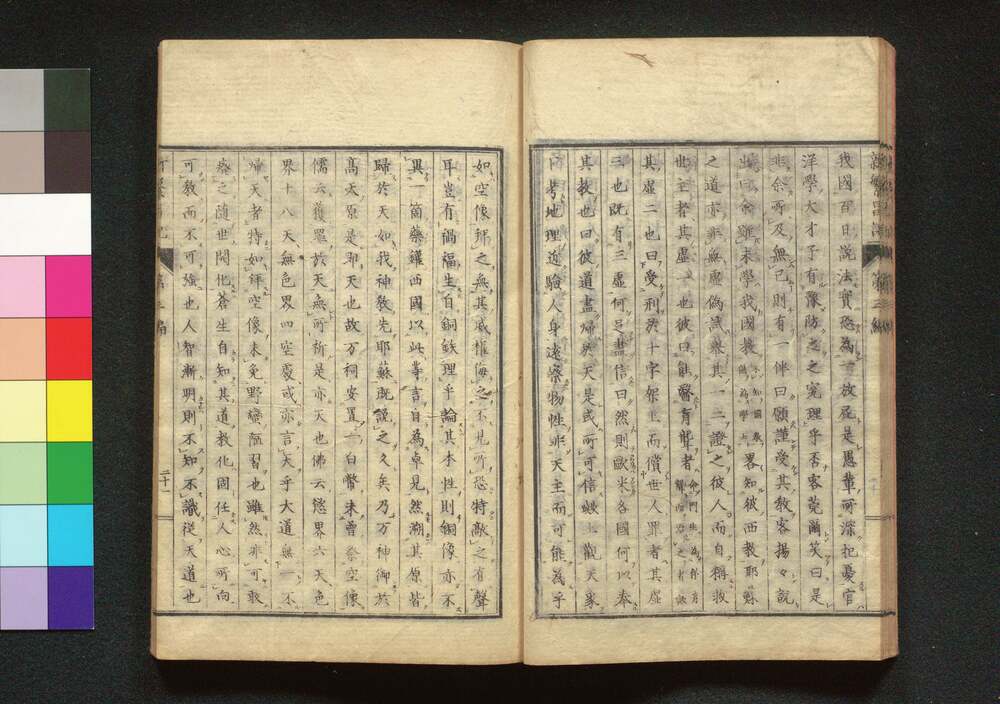 我國百日說法實恐為一放屁是愚輩可深抱憂官
洋學大才子有豫防之之寔理乎否客莞爾笑曰是
非余所及無已則有一伴曰願謹受其教客揚々說
曰余雖未學我國教畧知彼西教耶蘇
之道亦非無虛偽試舉其一二證之彼人而自稱救
世主者其虛一也彼曰能醫盲聾者
其虛二也曰受刑於十字架上而償世人罪者其虛
三也既有三虛何足盡信曰然則歐米各國何以奉
其教也曰彼道盡歸於天是或可可信歟仰觀天象
俯考地理近驗人身遠察物性非天主而可能為乎
如空像拜之無其威權侮之不見所恐特敵之有聲
耳豈有禍福生自銅鉄理乎論其本性則銅像亦不
異一箇藥鑵西國以此等言自為卓見然溯其原皆
歸於天如我神教先耶蘇既說之久矣乃万神御於
高天原是那天也故万祠安置一白幣未曾祭空像
儒云獲罪於天無可祈是亦天也佛云慾界六天色
界十八天無色界四空處戒亦言天乎大道無一不
歸天者特如拜空像未免野蠻陋習也雖然非可敢
瘳之随世開化蒼生自知其道教化固任人心所向
可教而不可強也人智漸明則不知不識從天道也
第二編
二十一